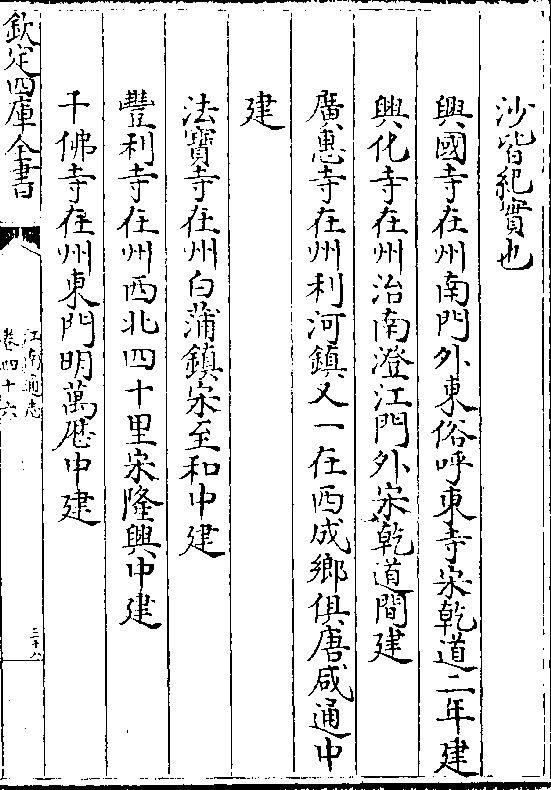 沙皆紀實也
興國寺在州南門外東俗呼東寺宋乾道二年建
興化寺在州治南澄江門外宋乾道間建
廣惠寺在州利河鎮又一在西成鄉俱唐咸通中
建
法寶寺在州白蒲鎮宋至和中建
豐利寺在州西北四十里宋隆興中建
千佛寺在州東門明萬厯中建
欽定四庫全書
江南通志
卷四十六